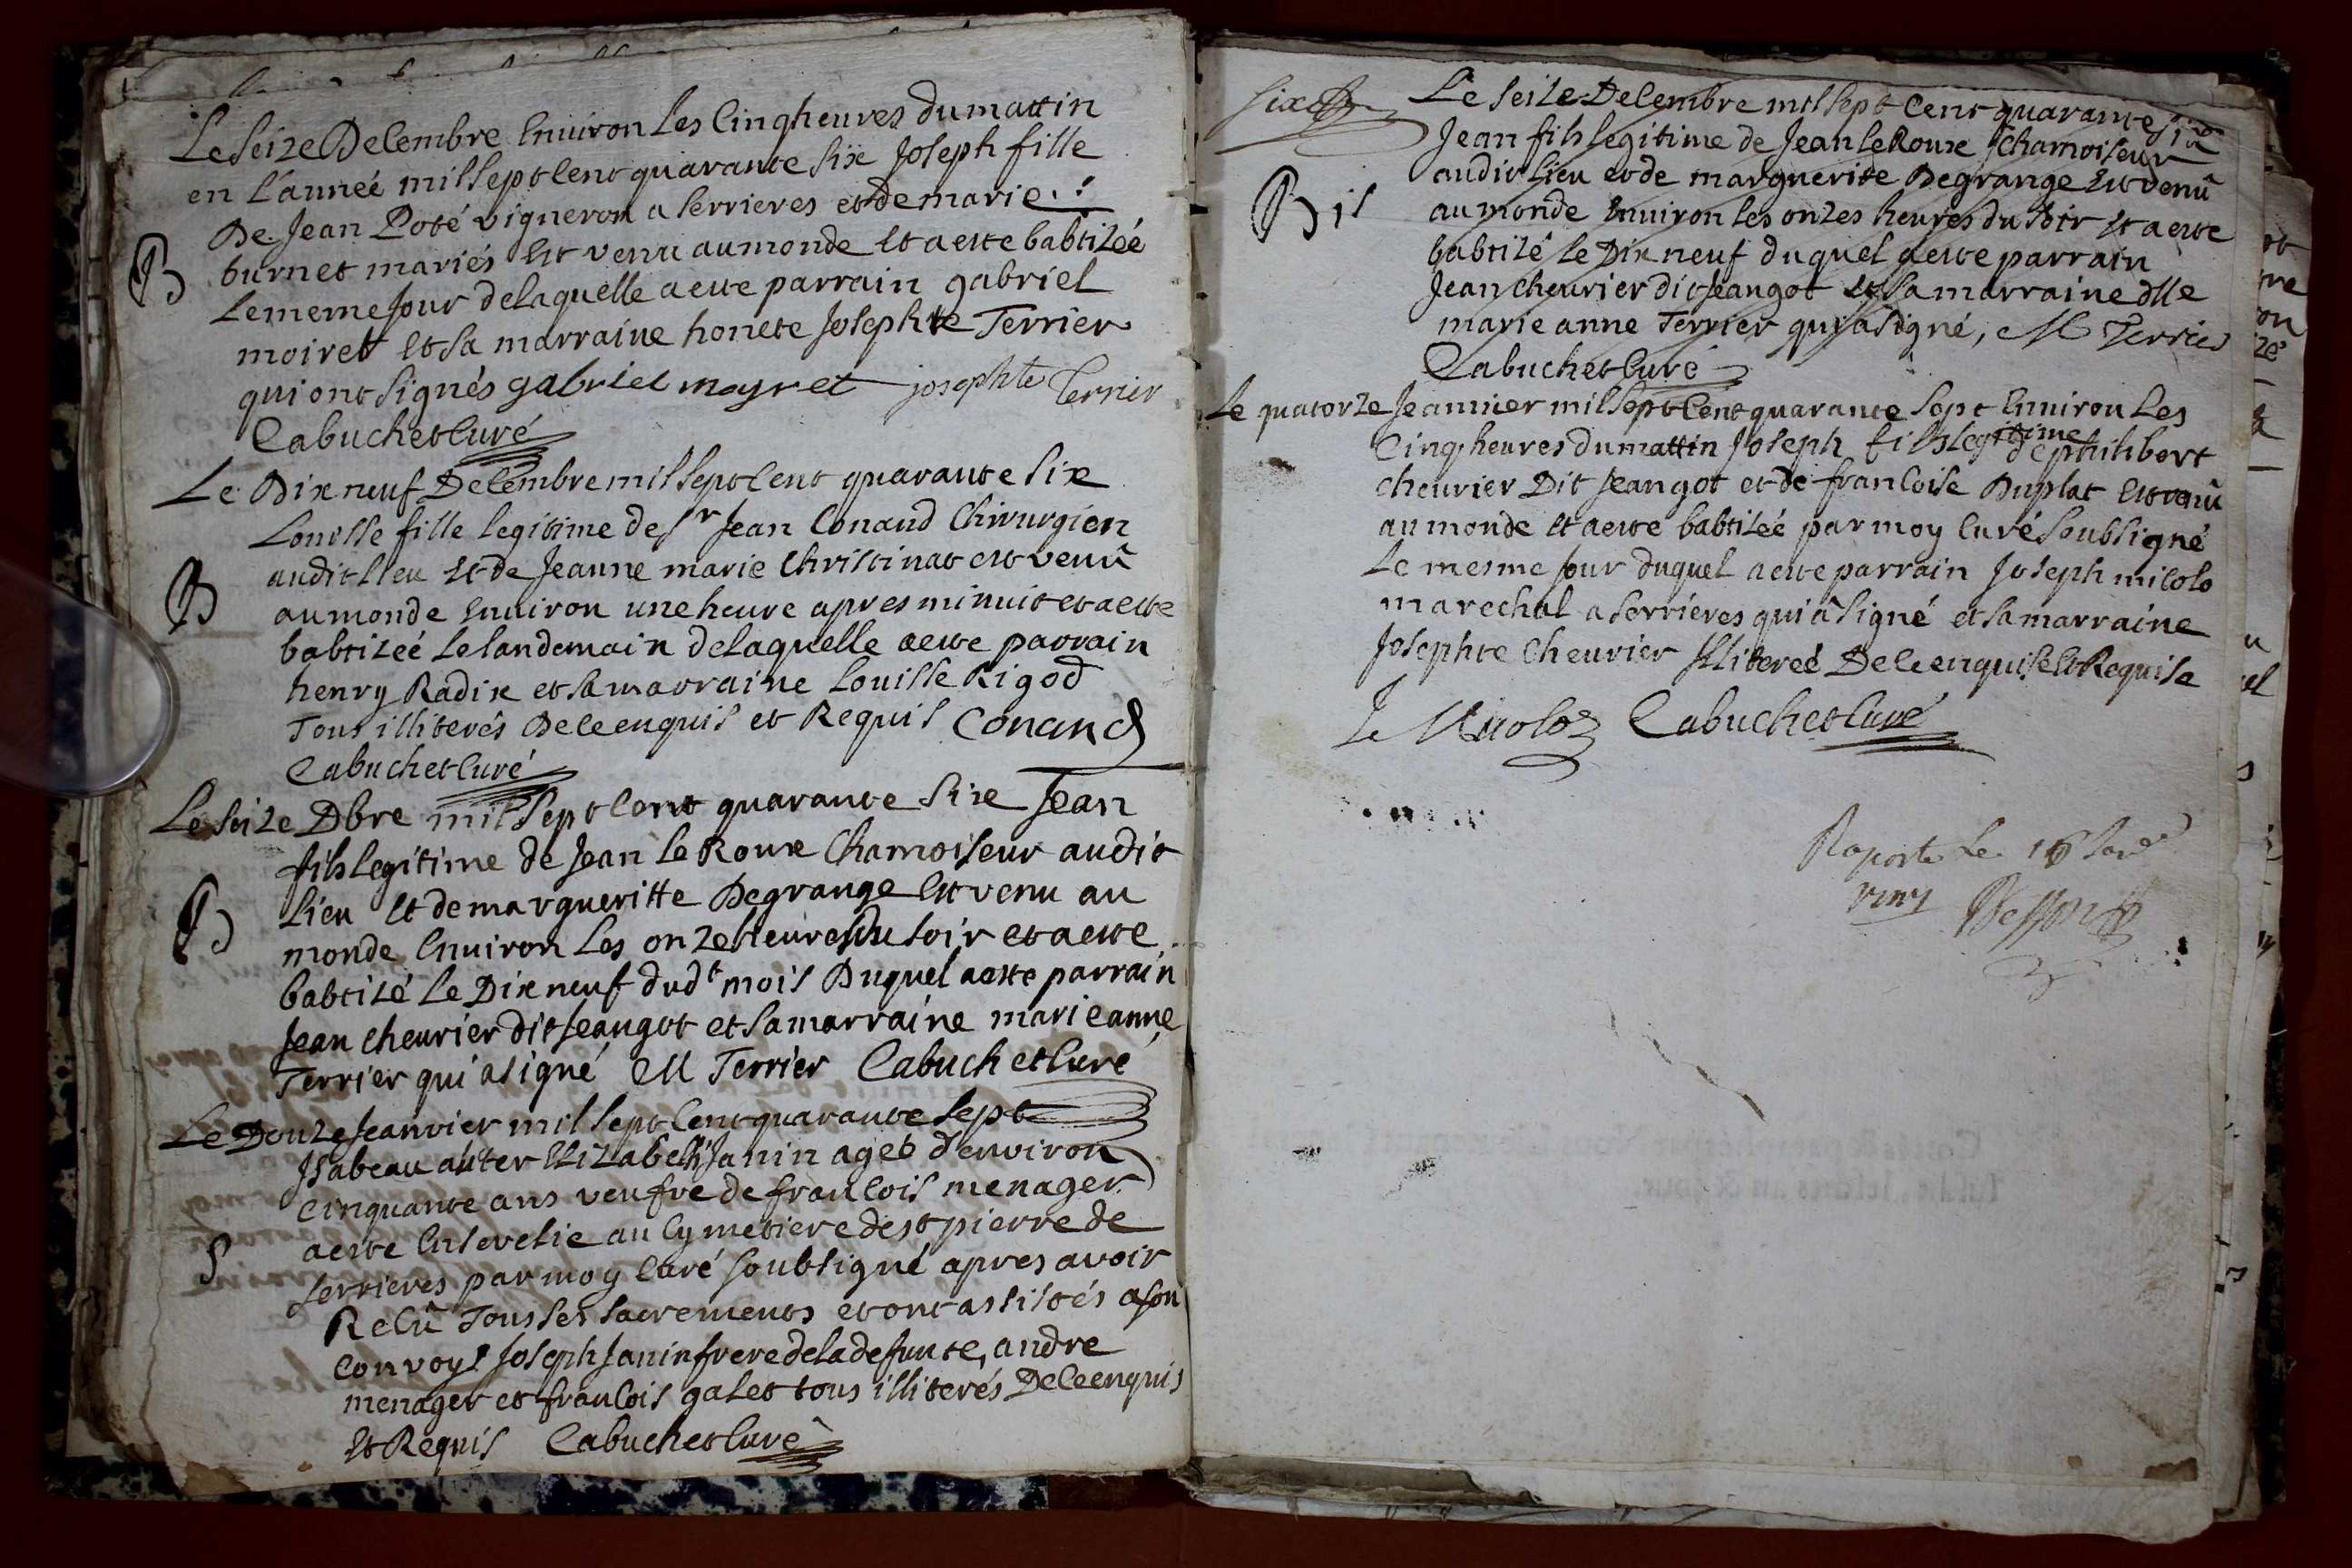 Le Seize Decembre Environ Les Cinq heures du mattin
en l'anneé mil Sept Cent quarante Six Joseph fille
De Jean Poté vigneron a Serrieres et de marie
burnet mariés Est venu au monde Et a este babtizéé
Le meme Jour de laquelle a este parrain gabriel
moiret Et Sa marraine honete Josephte Terrier
qui ont Signés gabriel moyret josephte Terrier
Cabuchet Curé
B
Le Dix neuf Decembre mil Sept Cent quarante Six
Louisse fille legitime de Sr Jean Conand Chirurgien
audit Lieu Et de Jeanne marie Christinat est venû
au monde Environ une heure apres minuit et a este
babtizéé le landemain de laquelle a este parrain
henry Radix et Sa marraine Louisse Rigod
Tous illiterés De ce enquis et Requis Conand
Cabuchet Curé
B
Le Seize Dbre mil Sept Cent quarante Six Jean
fils legitime de Jean le Roux Chamoiseur audit
Lieu Et de margueritte Degrange Est venu au
monde Environ Les onze heures du Soir et a este
babtizé Le Dix neuf dudt mois Duquel a este parrain
Jean chevrier dit Jeangot et Sa marraine marie anne
Terrier qui a signé M Terrier Cabuchet Curé
B
Le Douze Jeanvier mil Sept Cent quarante Sept
Isabeau auter Elizabeth Janin ageé d'environ
cinquante ans veufve de francois menager
a este Ensevelie au Cymetiere de st pierre de
Serrieres par moy Curé Soubsigné apres avoir
Recû Tous Ses Sacrements et ont assistés a son
convoys Joseph Janin frere de la defunte, andre
menager et francois galet tous illiterés De ce enquis
Et Requis Cabuchet Curé
S
Six
Le Seize Decembre mil Sept Cent quarante Six
Jean fils legitime de Jean le Roux Chamoiseur
audit Lieu et de marguerite Degrange Est venû
au monde Environ les onzes heures du Soir Et a este
babtizé Le Dix neuf duquel a este parrain
Jean chevrier dit Jeangot Et Sa marraine dlle
marie anne Terrier qui a Signé, M Terrier
Cabuchet Curé
Bis
Le quatorze Jeanvier mil Sept Cent quarante Sept Environ Les
Cinq heures du mattin Joseph fils legitime de philibert
chevrier Dit Jeangot et de francoise Duplat Est venû
au monde Et a este babtizéé par moy Curé Soubsigné
Le mesme Jour duquel a este parrain Joseph micolo
marechal a Serrieres qui a Signé et Sa marraine
Josephte Chevrier Illitereé De ce enquise Et Requise
Cabuchet Curé
Raporté Le 16